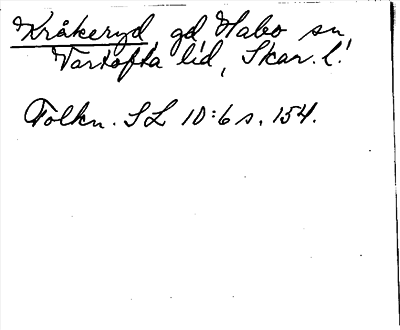 Kråkeryd, gd, Habo sn,
Vartofta hd, Skar. l.
Tolkn. SL 10:6 s. 154.